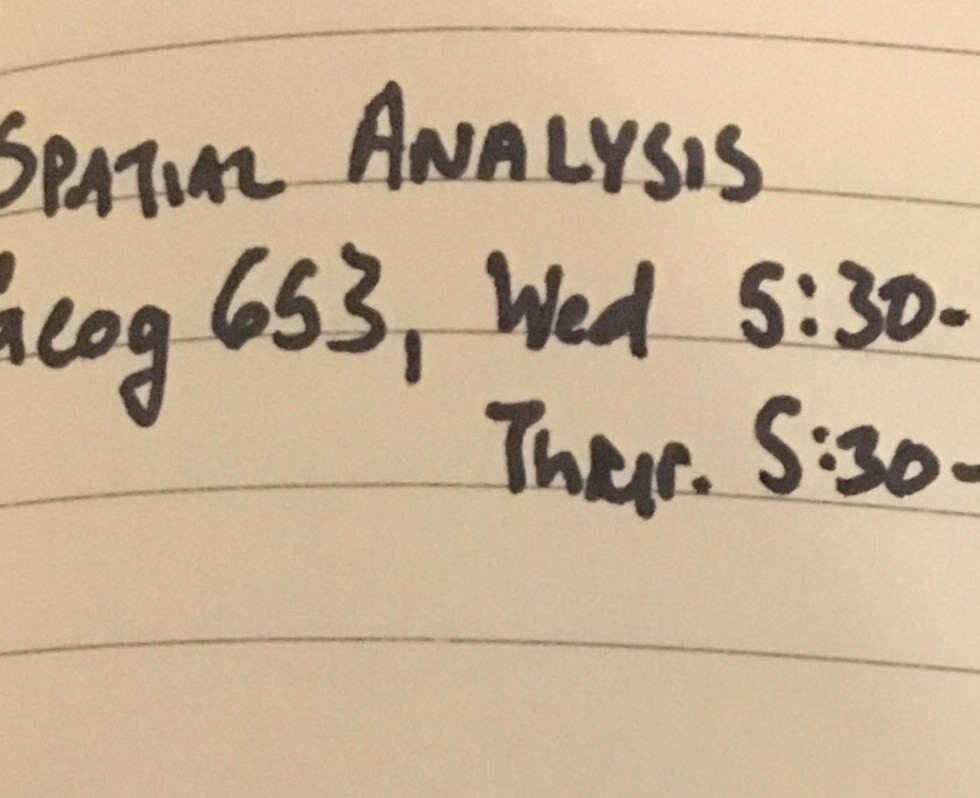 SPATIAL ANALYSIS
653, Wed 5:30-
Thur. 5:30-